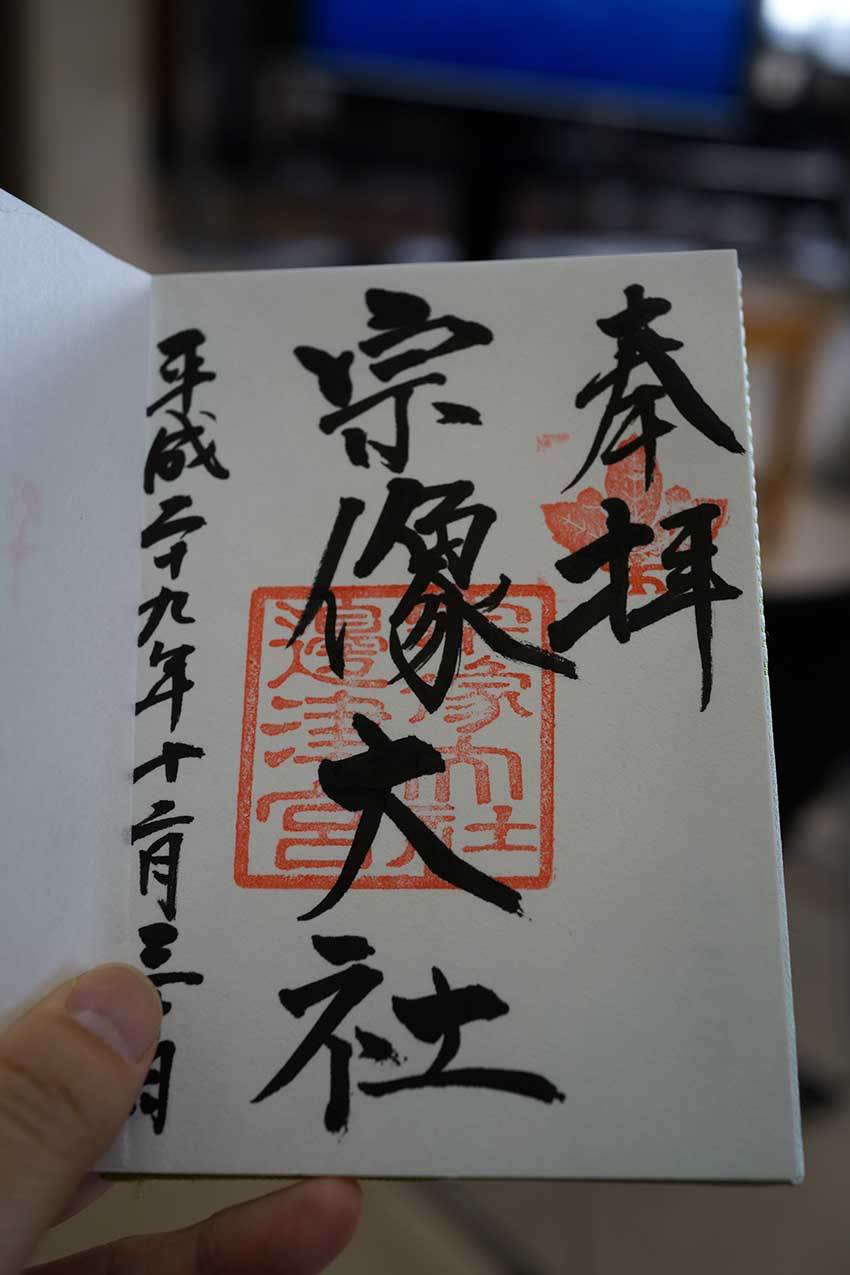 奉拝
宗像大社
宗像大社
邊津宮
平成二十九年十二月三